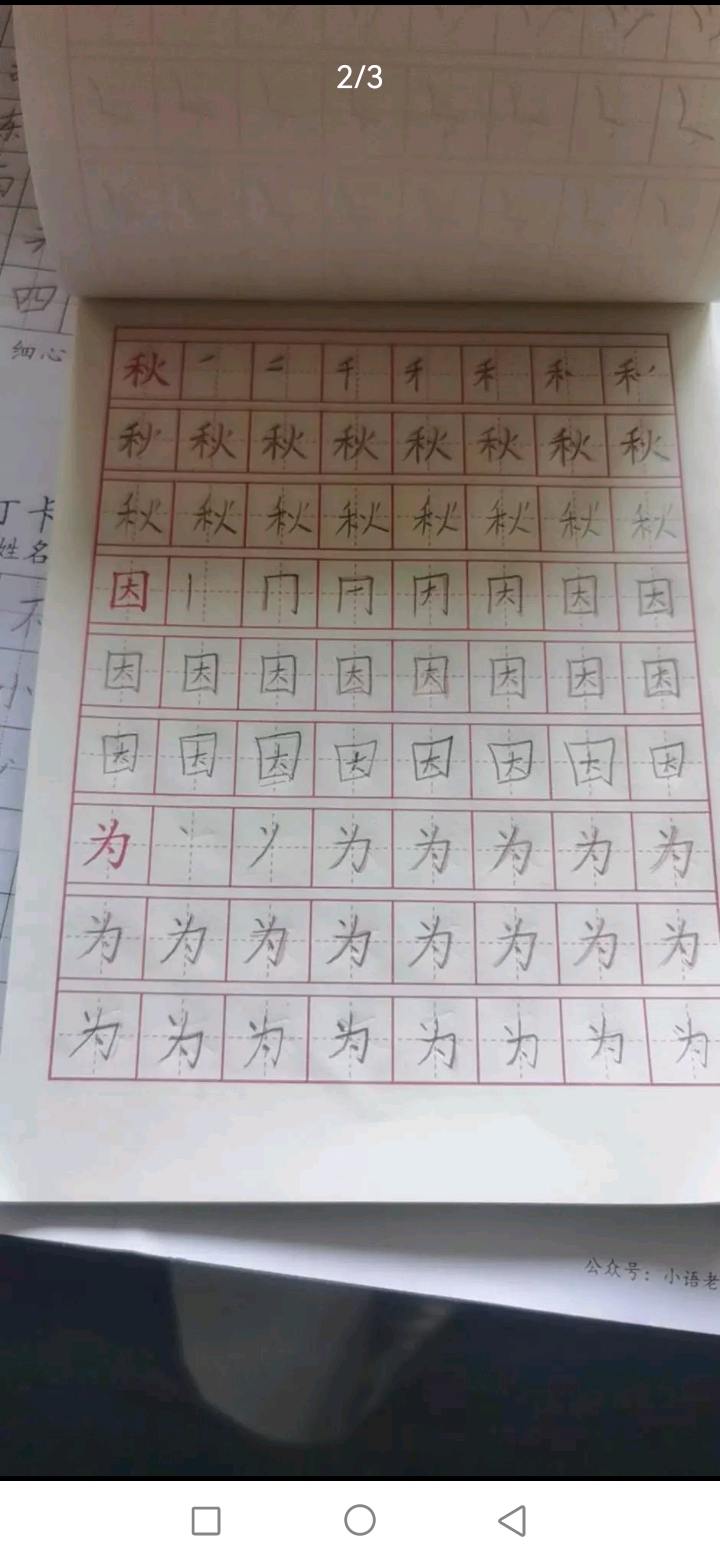 2/3
四
细心
秋 一 二 千 禾
秋 秋 秋 秋 秋 秋 秋
秋 秋 秋 秋 秋 秋 秋 秋
卡
姓名
因 丨 冂 因 因
不
因 因 因 因 因 因 因 因
小
因 因 因 因 因 因 因 因
为 丶 为 为 为 为 为
为 为 为 为 为 为 为 为
为 为 为 为 为 为 为 为
公众号：小语老